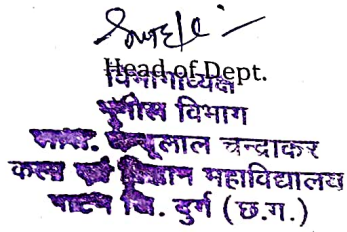 Head of Dept.
विभागाध्यक्ष
भूगोल विभाग
शास. चन्दूलाल चन्द्राकर
कला एवं विज्ञान महाविद्यालय
पाटन जि. दुर्ग (छ.ग.)